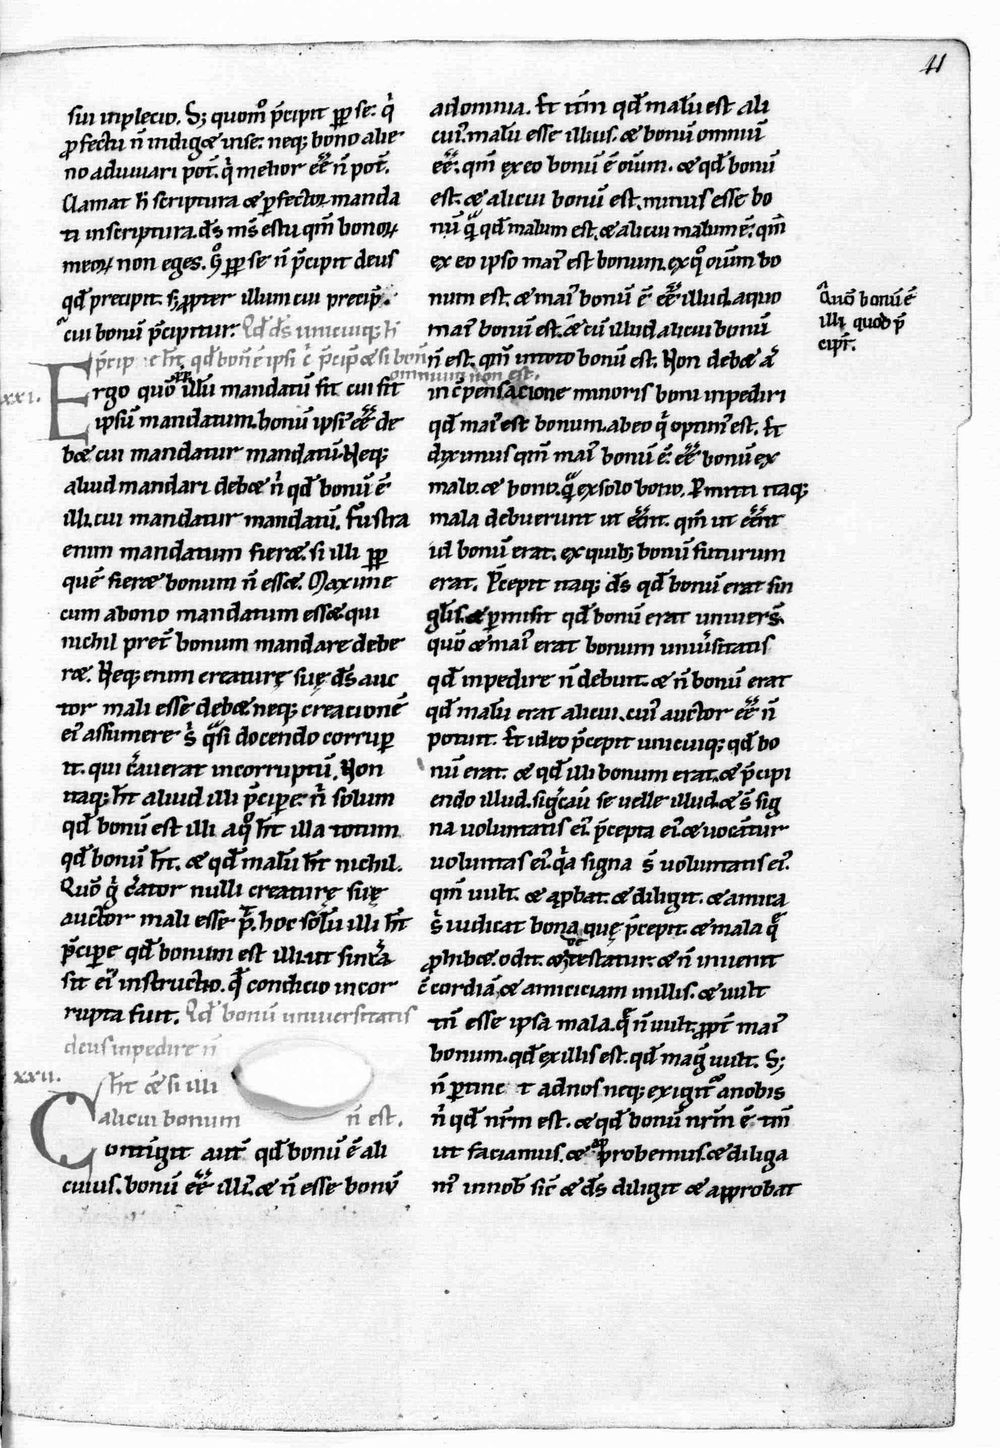 41
sui inplecio. S; quom̊ p̄cipit ꝓp̱ se: q̇
ꝓfectu n̄ indigæ in se: neq; bono alie
no adiuuari pot̄. q̇ melior eē n̄ pot̄.
Clamat h̄ scriptura æ p̱fectoꝝ manda
ti in scriptura. ds̄ ms̄ es tu qm̄ bonoꝝ
meoꝝ non eges. g̊ ꝓp̱ se n̄ p̄cipit deus
qd̄ precipit. s; ꝓpter illum cui precip̄.
cui bonū p̄cipitur. Qd̄ ds̄ unicuiq; h̄
p̄cip h̄t qd̄ bonē ē ipsi æ si bonū
omnium non est.
xxi.
Ergo quō illū mandatū fit cui fit
ipsū mandatum. bonū ipsi eē de
bæ cui mandatur mandatū. Neq;
aliud mandari debæ n̄ qd̄ bonū ē
illi. cui mandatur mandatū. Frustra
enim mandatum fieræ. si illi ꝓp̱
quē fieræ bonum n̄ essæ. Maxime
cum a bono mandatum essæ. qui
nichil pret̄ bonum mandare debe
ræ. Neq; enim creaturę suę ds̄ auc
tor mali esse debæ. neq; creacionē
ei' assumere s̄ qͣsi docendo corrup̱
it. qui c̄auerat incorruptū. Non
itaq; h̄t aliud illi p̄cipe: n̄ solum
qd̄ bonū est illi a q̊ h̄t illa totum
qd̄ bonū h̄t. æ qd̄ malū h̄t nichil.
Quō g̊ c̄ator nulli creaturę suę
auctor mali esse p̄t. hoc solū illi h̄t
p̄cipe qd̄ bonum est illi. ut sincͣa
sit ei' instructio. qͣ condicio incor
rupta fuit. Qd̄ bonū uniuersitatis
deus inpedire n̄
xxii.
h̄t æ si illi
alicui bonum n̄ est.
Contigit aut̄ qd̄ bonū ē ali
cuius. bonū eē illi'. æ n̄ esse bonū
ad omnia. Et itm̄ qd̄ malū est ali
cui'. malū esse illius. æ bonū omniū
eē. qm̄ ex eo bonū ē oīum. æ qd̄ bonū
est. æ alicui bonū est. minus esse bo
nū qͣ qd̄ malum est. æ alicui malum ē. qm̄
ex eo ipso mai' est bonum. ex q̊ oīum bo
num est. æ mai' bonū ē eē illud. a quo
mai' bonū est. æ cū illud alicui bonū
n̄ est. qm̄ in toto bonū est. Non debæ
in c̄pensacione minoris boni inpediri
qd̄ mai' est bonum. ab eo q̇ optim' est. Et
diximus qm̄ mai' bonū ē. eē bonū ex
malo. æ bono. qͣ ex solo bono. P̱mitti itaq;
mala debuerunt ut eēnt. qm̄ ut eēnt
id bonū erat. ex quib; bonū futurum
erat. P̄cepit itaq; ds̄ qd̄ bonū erat sin
gl̄is. æ p̱misit qd̄ bonū erat uniuers̄.
quō æ mai' erat bonum uniu̇sitatis
qd̄ inpedire n̄ debuit. æ n̄ bonū erat
qd̄ malū erat alicui. cui' auctor eē n̄
potuit. Et ideo p̄cepit unicuiq; qd̄ bo
nū erat. æ qd̄ illi bonum erat. æ p̄cipi
endo illud. sig̊cauī se uelle illud. æ s̄ sig
na uoluntatis ei' p̄cepta ei'. æ uocātur
uoluntas ei'. qͣ signa s̄ uoluntatis ei'.
qm̄ uult. æ aꝓbat. æ diligit. æ amica
s̄ iudicat bona quę p̄cepit. æ mala qͣ
ꝓhibæ. odit. æ detestatur. æ n̄ inuenit
c̄cordiā æ amiciciam in illis. æ uult
tn̄ esse ipsa mala. qͣ n̄ uult. ꝓpt̄ mai'
bonum. qd̄ ex illis est. qd̄ mag' uult. S;
n̄ p̱tine t ad nos neq; exigit̊ a nobis
n̄ qd̄ nr̄m est. æ qd̄ bonū nr̄m ē tm̄
ut faciamus. æ approbemus. æ diliga
m' in nob̄ sic̄ æ ds̄ diligit æ approbat
Quō bonū ē
illi quod p̄
cipit̄.